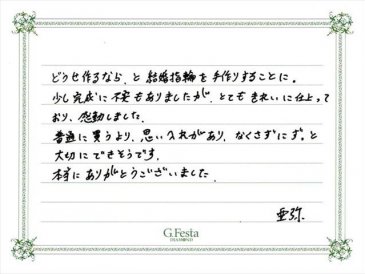 どうせ作るなら、と結婚指輪を手作りすることに。
少し完成に不安もありましたが、とてもきれいに仕上って
おり、感動しました。
普通に買うより、思い入れがあり、なくさずにずっと
大切にできそうです。
本当にありがとうございました。
亜弥
G.Festa
DIAMOND